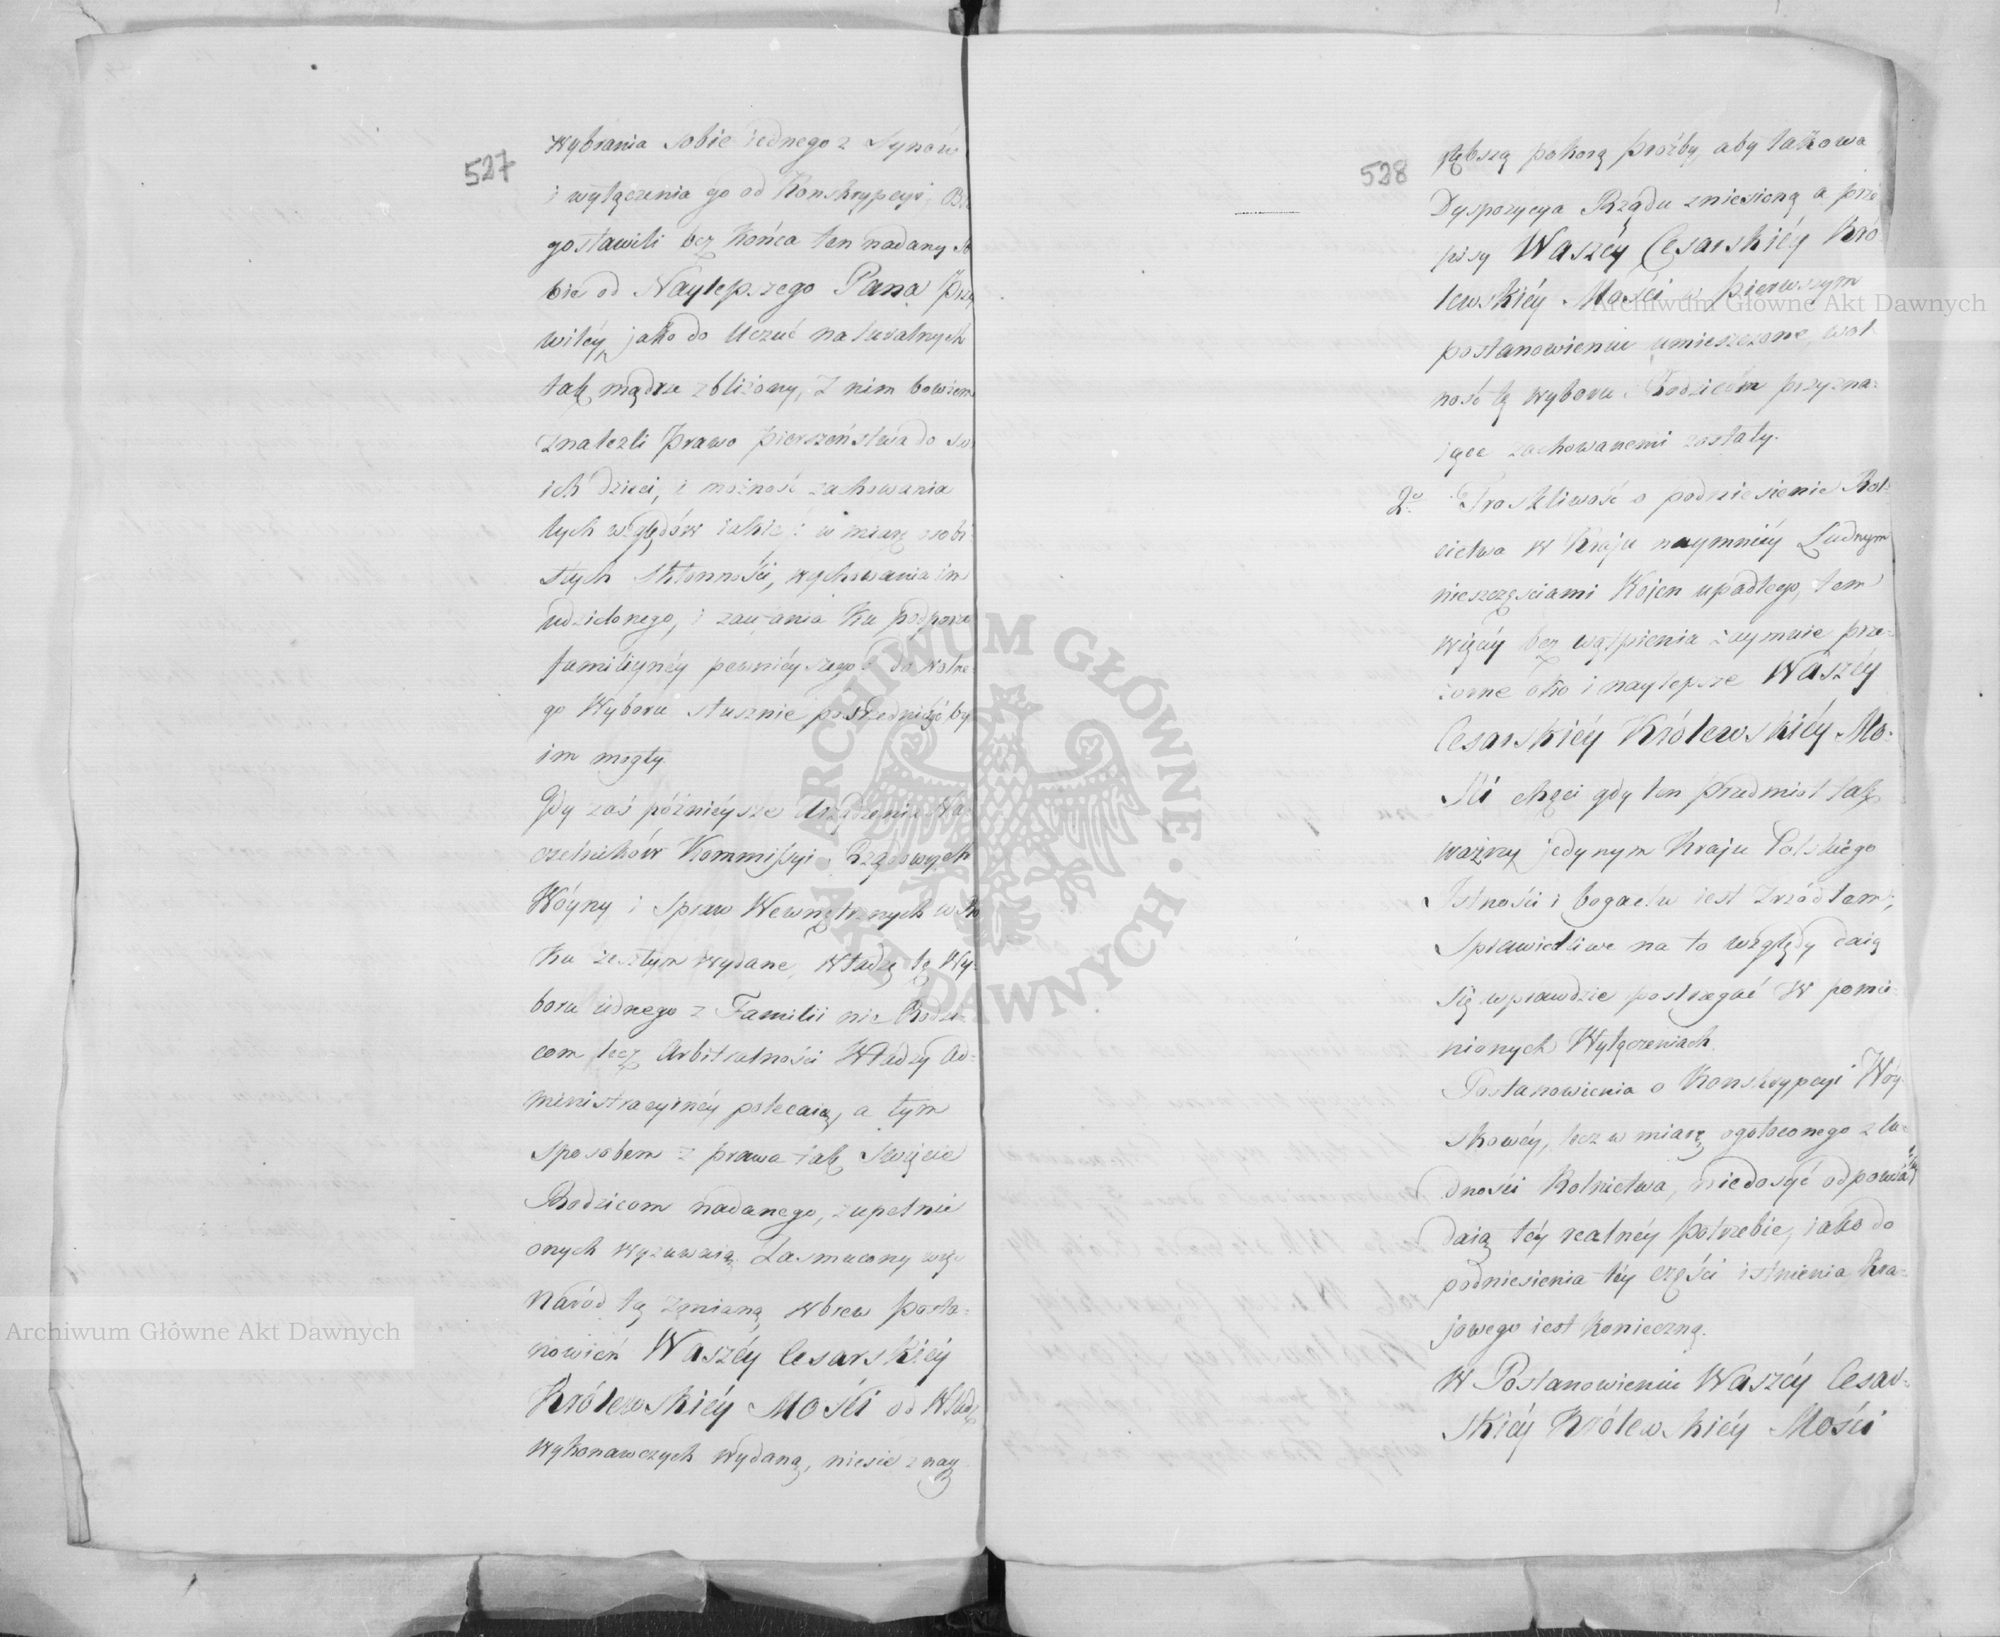 527
wybrania sobie iednego z Synów
i wyłączenia go od Konskrypcyi, Bło
gosławili bez końca ten nadany so
bie od Naylepszego Pana Przy
wiléy, jako do Uczuć naturalnych
tak mądrze zbliżony, Z nim bowiem
znaleźli Prawo pierszeństwa do swo
ich dzieci, i możność zachowania
tych względów iakie w miarę osobi
stych skłonności, wychowania im
udzielonego, i zaufania ku podporze
familiynéy pewniéyszego do wolne
go Wyboru słusznie pośredniczyć by
im mogły.
Gdy zaś póżniéysze Urządzenia Na
czelników Kommissyi Rządowych
Wóyny i Spraw Wewnętrznych w Ro
ku zeszłym wydane, Władzę tę Wy-
boru iednego z Familii nie Rodzi-
com lecz Arbitralności Władzy Ad-
ministracyinéy polecaią, a tym
sposobem z prawa tak święcie
Rodzicom nadanego, zupełnie
onych wyzuwaią. Zasmucony więc
Naród tą zmianą wbrew Posta-
nowień Waszéy Cesarskiéy
Królewskiéy Mości od Władz
wykonawczych wydaną, niesie z nay
528
głębszą pokorą prośby, aby takowa
Dyspozycya Rządu zniesioną a prze
pisy Waszéy Cesarskiéy Kró-
lewskiéy Mości w pierwszym
postanowieniu umieszczone, wol
ność tę wyboru Rodzicóm przyzna-
iące zachowanemi zostały.
2o Troskliwość o podniesienie Rol-
nictwa w Kraju naymniéy Ludnym
nieszczęściami Wojen upadłego, tem
więcéy bez wątpienia zaymuie prze-
zorne oko i naylepsze Waszéy
Cesarskiéy Królewskiéy Mo-
ści chęci gdy ten Przedmiot tak
ważny jedynym Kraju Polskiego
Istności i bogactw iest Zrzódłem;
Sprawiedliwe na to względy daią
się wprawdzie postrzegać w pomie-
nionych Wyłączeniach
Postanowienia o Konskrypcyi Wóy-
skowéy, lecz w miarę ogołoconego z lu-
dności Rolnictwa, niedosyć odpowia
daią téy realnéy Potrzebie, iako do
podniesienia téy części istnienia Kra-
jowego iest konieczną.
W Postanowieniu Waszéy Cesar-
skiéy Królewskiéy Mości
Archiwum Główne Akt Dawnych
Archiwum Główne Akt Dawnych
ARCHIWUM GŁÓWNE AKT DAWNYCH